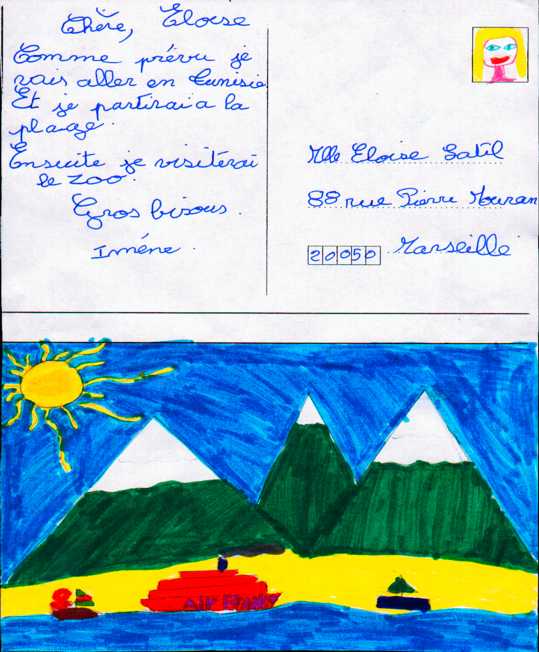 Chère, Eloïse
Comme prévu je
vais aller en tunisie.
Et je partirai a la
plage.
Ensuite je visiterai
le zoo.
Gros bisous.
Imène.
Mlle Eloise Satil
88 rue Pierre Mouran
20050 Marseille
Air